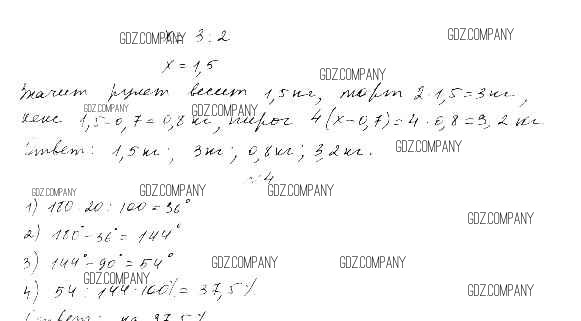 GDZ.COMPANY
x = 3 : 2
GDZ.COMPANY
x = 1,5
GDZ.COMPANY
Значит рулет весит 1,5 кг, торт 2 · 1,5 = 3 кг,
GDZ.COMPANY
GDZ.COMPANY
кекс 1,5 - 0,7 = 0,8 кг, пирог 4(x - 0,7) = 4 · 0,8 = 3,2 кг
Ответ: 1,5 кг; 3 кг; 0,8 кг; 3,2 кг.
GDZ.COMPANY
№ 4
GDZ.COMPANY
GDZ.COMPANY
GDZ.COMPANY
1) 180 · 20 : 100 = 36°
GDZ.COMPANY
2) 180° - 36° = 144°
3) 144° - 90° = 54°
GDZ.COMPANY
GDZ.COMPANY
GDZ.COMPANY
4) 54 : 144 · 100% = 37,5%
GDZ.COMPANY
Ответ: на 37,5%